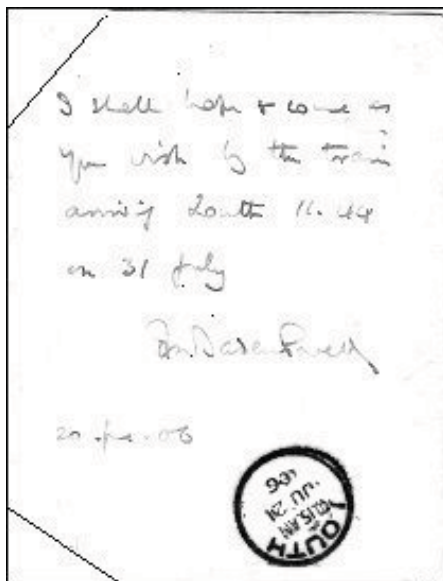 I shall hope to come as
you wish by the train
arriving Louth 11.44
on 31 July
BadenPowell
06
LOUTH
9.15 AM
JU 24
06